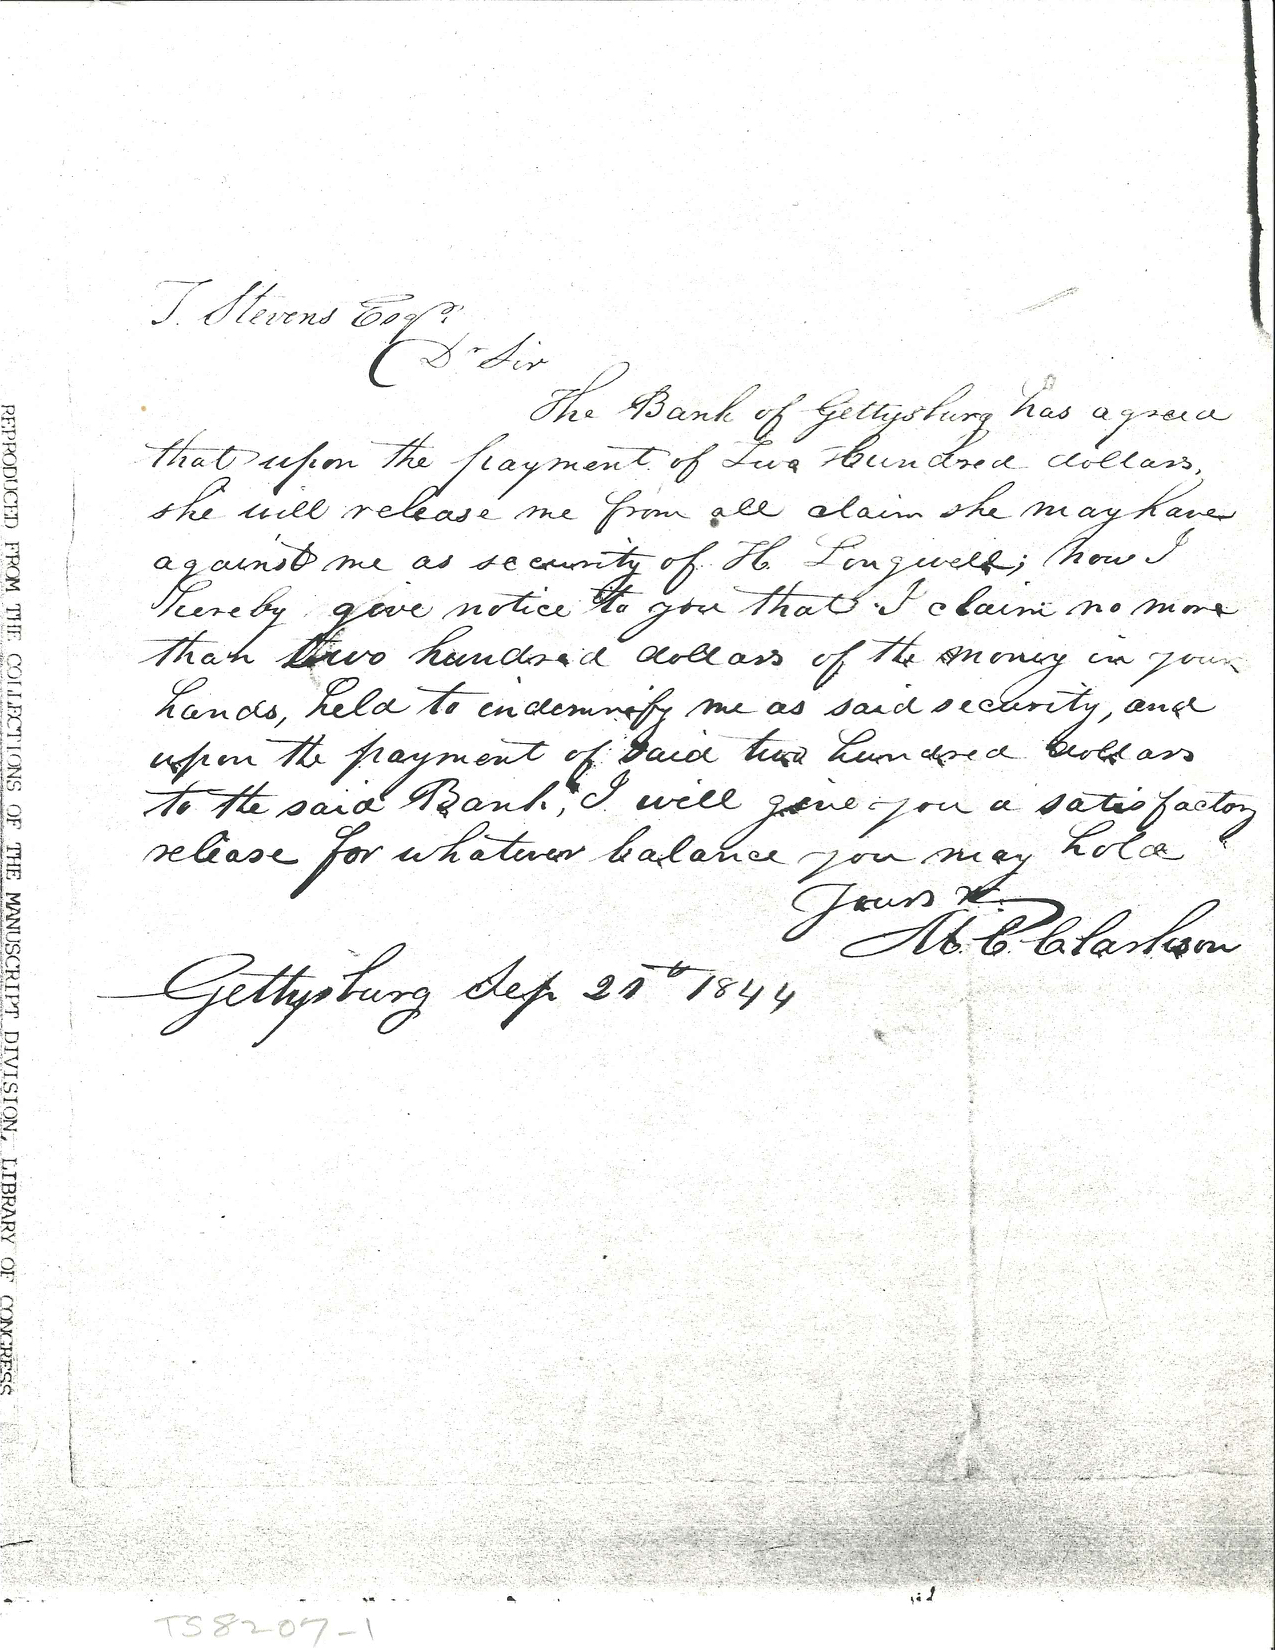 T. Stevens Esqr.
Dr Sir
The Bank of Gettysburg has agreed
that upon the payment of Two Hundred dollars,
she will release me from all claim she may have
against me as security of H. Longwell; now I
hereby give notice to you that I claim no more
than two hundred dollars of the money in your
hands, held to indemnify me as said security, and
upon the payment of said two hundred dollars
to the said Bank, I will give you a satisfactory
release for whatever balance you may hold
Yours
M. C. Clarkson
Gettysburg Sep 21th 1844
REPRODUCED FROM THE COLLECTIONS OF THE MANUSCRIPT DIVISION, LIBRARY OF CONGRESS
TS8207-1